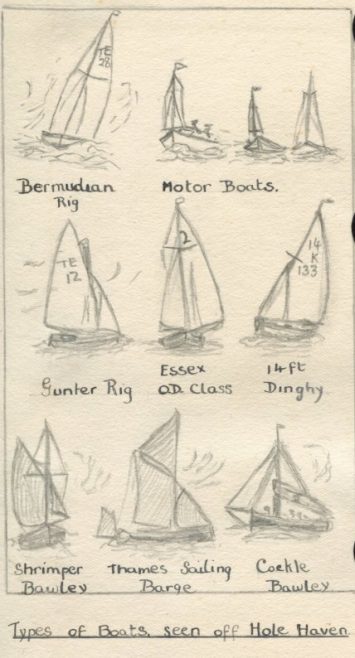 TE
28
Bermudian
Rig
Motor Boats.
TE
12
2
14
K
133
Gunter Rig
Essex
O.D. Class
14ft
Dinghy
Shrimper
Bawley
Thames Sailing
Barge
Cockle
Bawley
Types of Boats. seen off Hole Haven